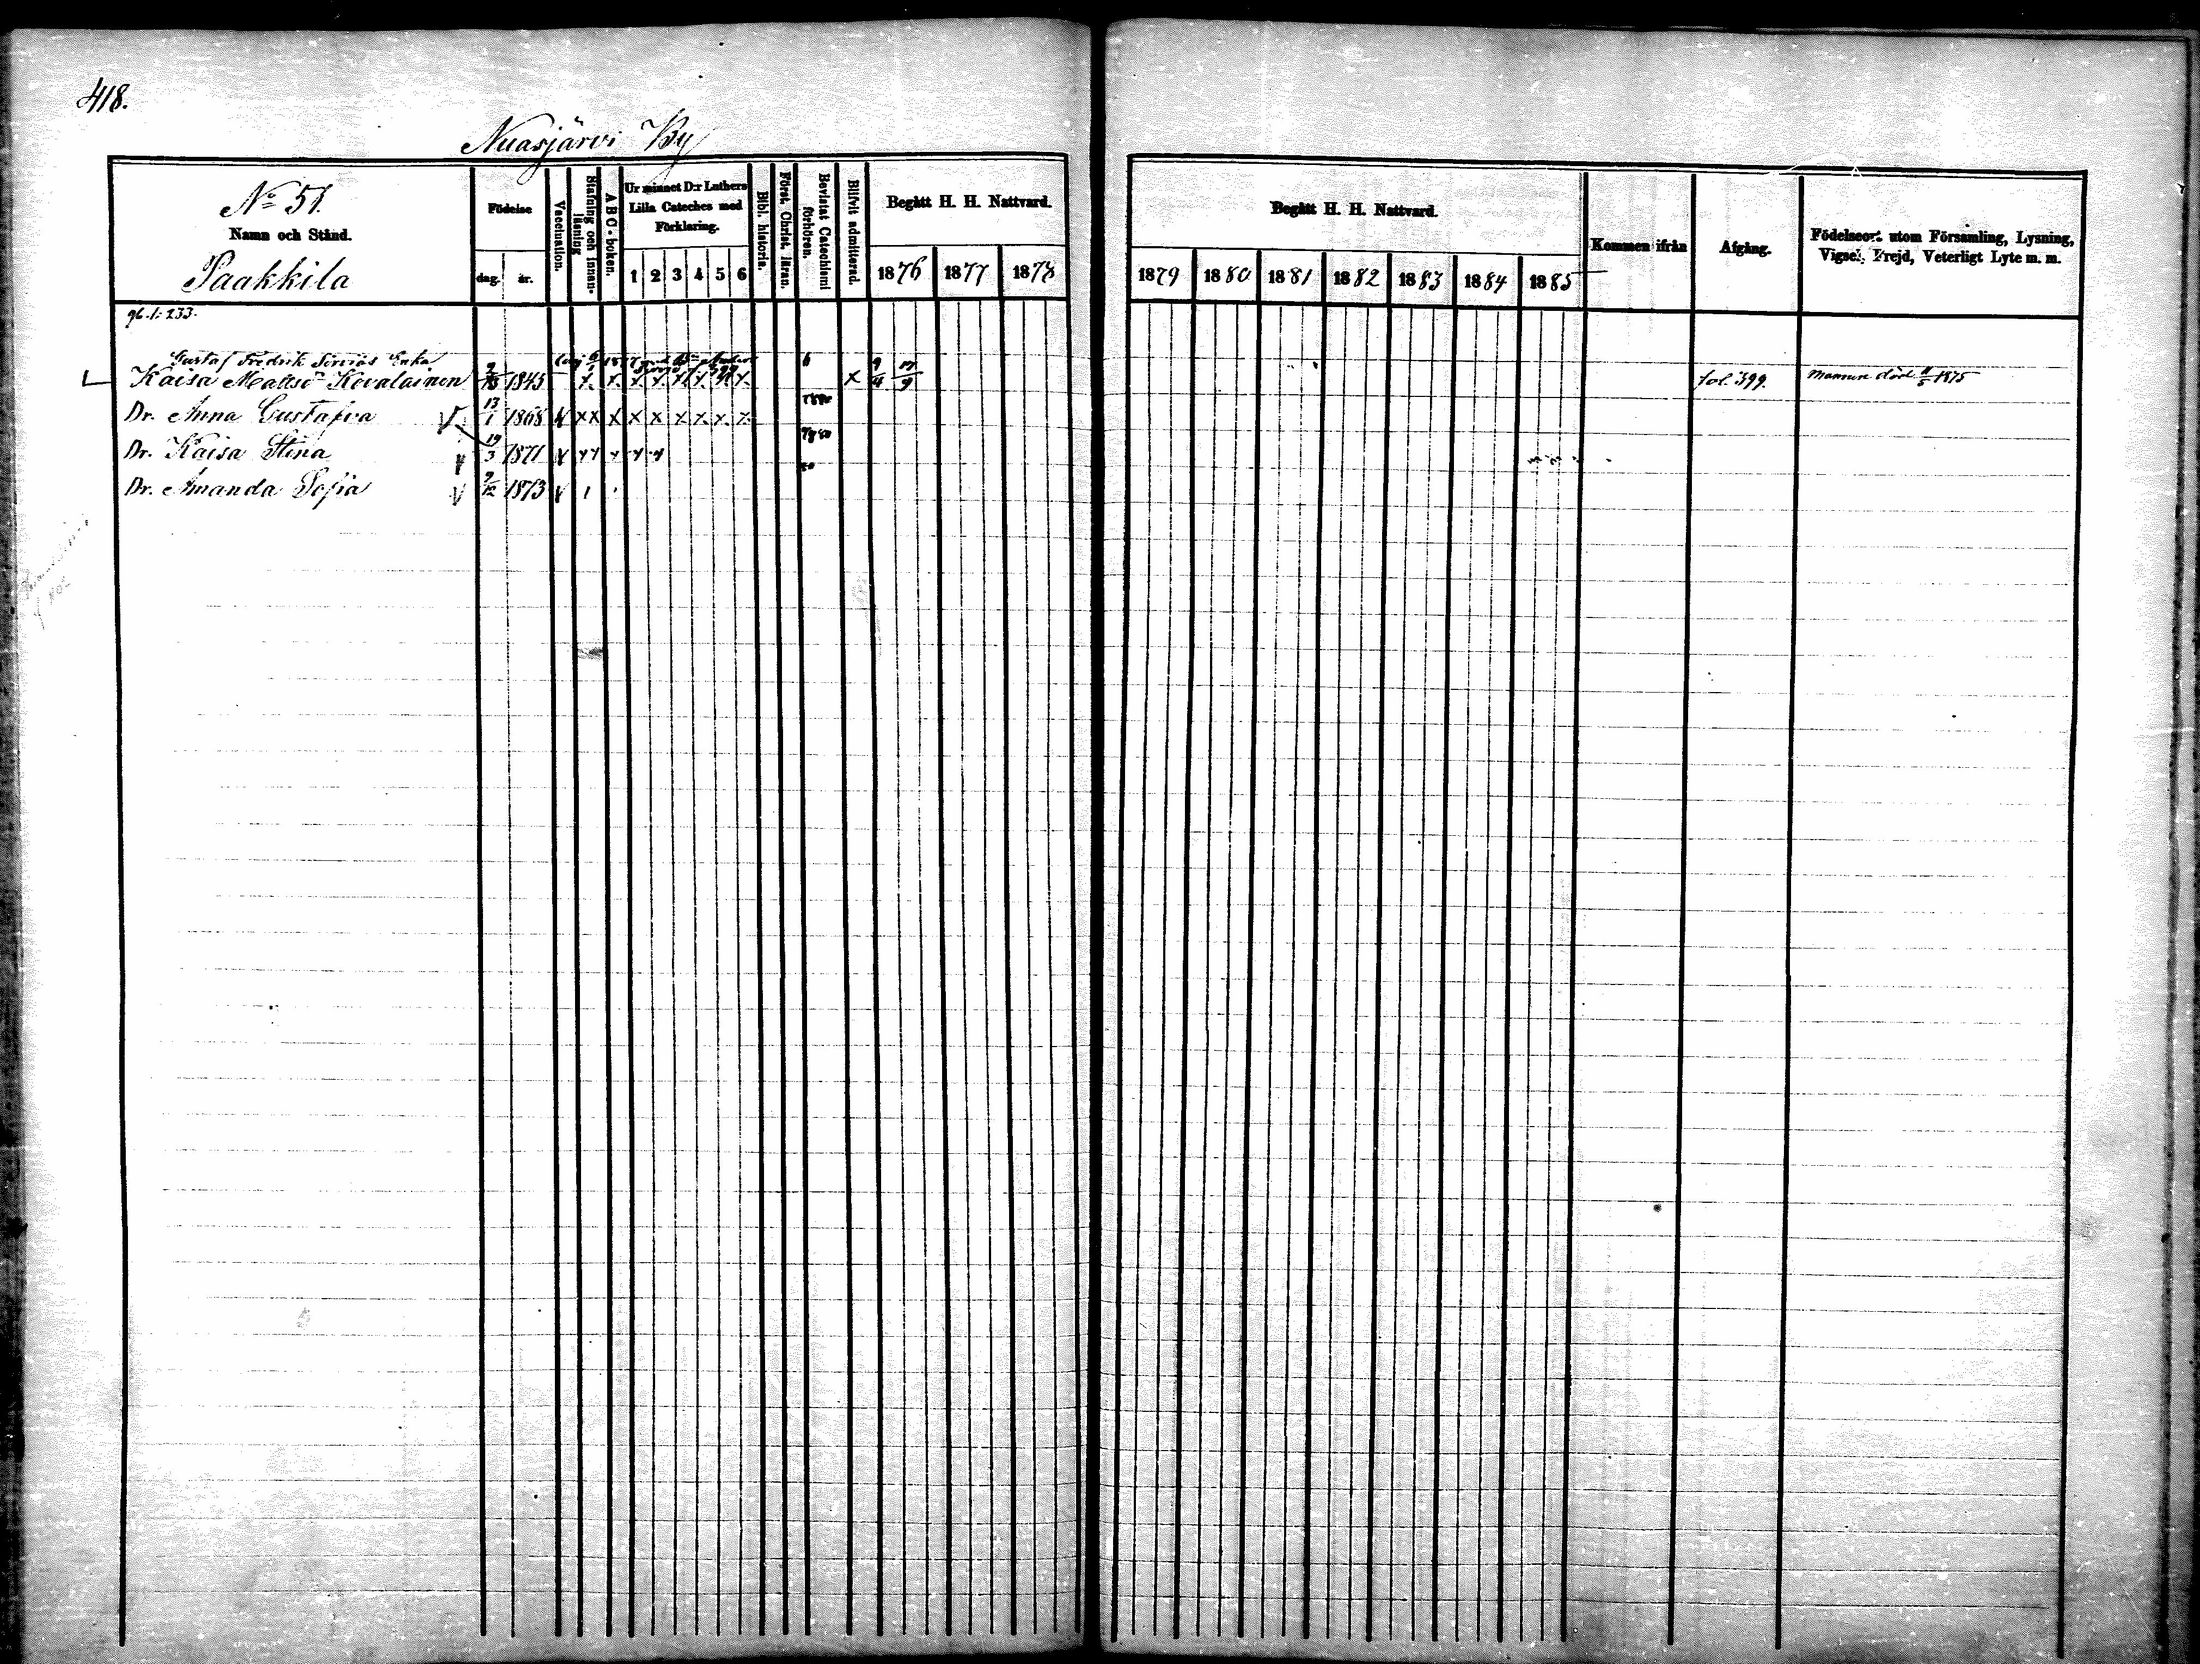 418.
Nuasjärvi By
No 51.
Namn och Stånd.
Paakkila
Födelse
dag. år.
Vaccination.
Stafning och innanläsning
A B C-boken.
Ur minnet D:r Luthers Lilla Cateches med Förklaring.
1 2 3 4 5 6
Bibl. historia.
Först. Christ. läran.
Bevistat Catechismi förhören.
Blifvit admitterad.
Begått H. H. Nattvard.
1876 1877 1878
Begått H. H. Nattvard.
1879 1880 1881 1882 1883 1884 1885
Kommen ifrån
Afgång.
Födelseort utom Församling, Lysning, Vigsel, Frejd, Veterligt Lyte m. m.
96. 1: 233.
Gustaf Fredrik Enka
Kaisa Mattsd Kovalainen 1845 x x x x x x x x x 9/4 fol. 399. mannen död 1875
Dr. Anna Gustafva 13/1 1868 V x x x x x x x x x
Dr. Kaisa Stina 19/3 1871 V
Dr. Amanda Sofia 9/12 1873 V